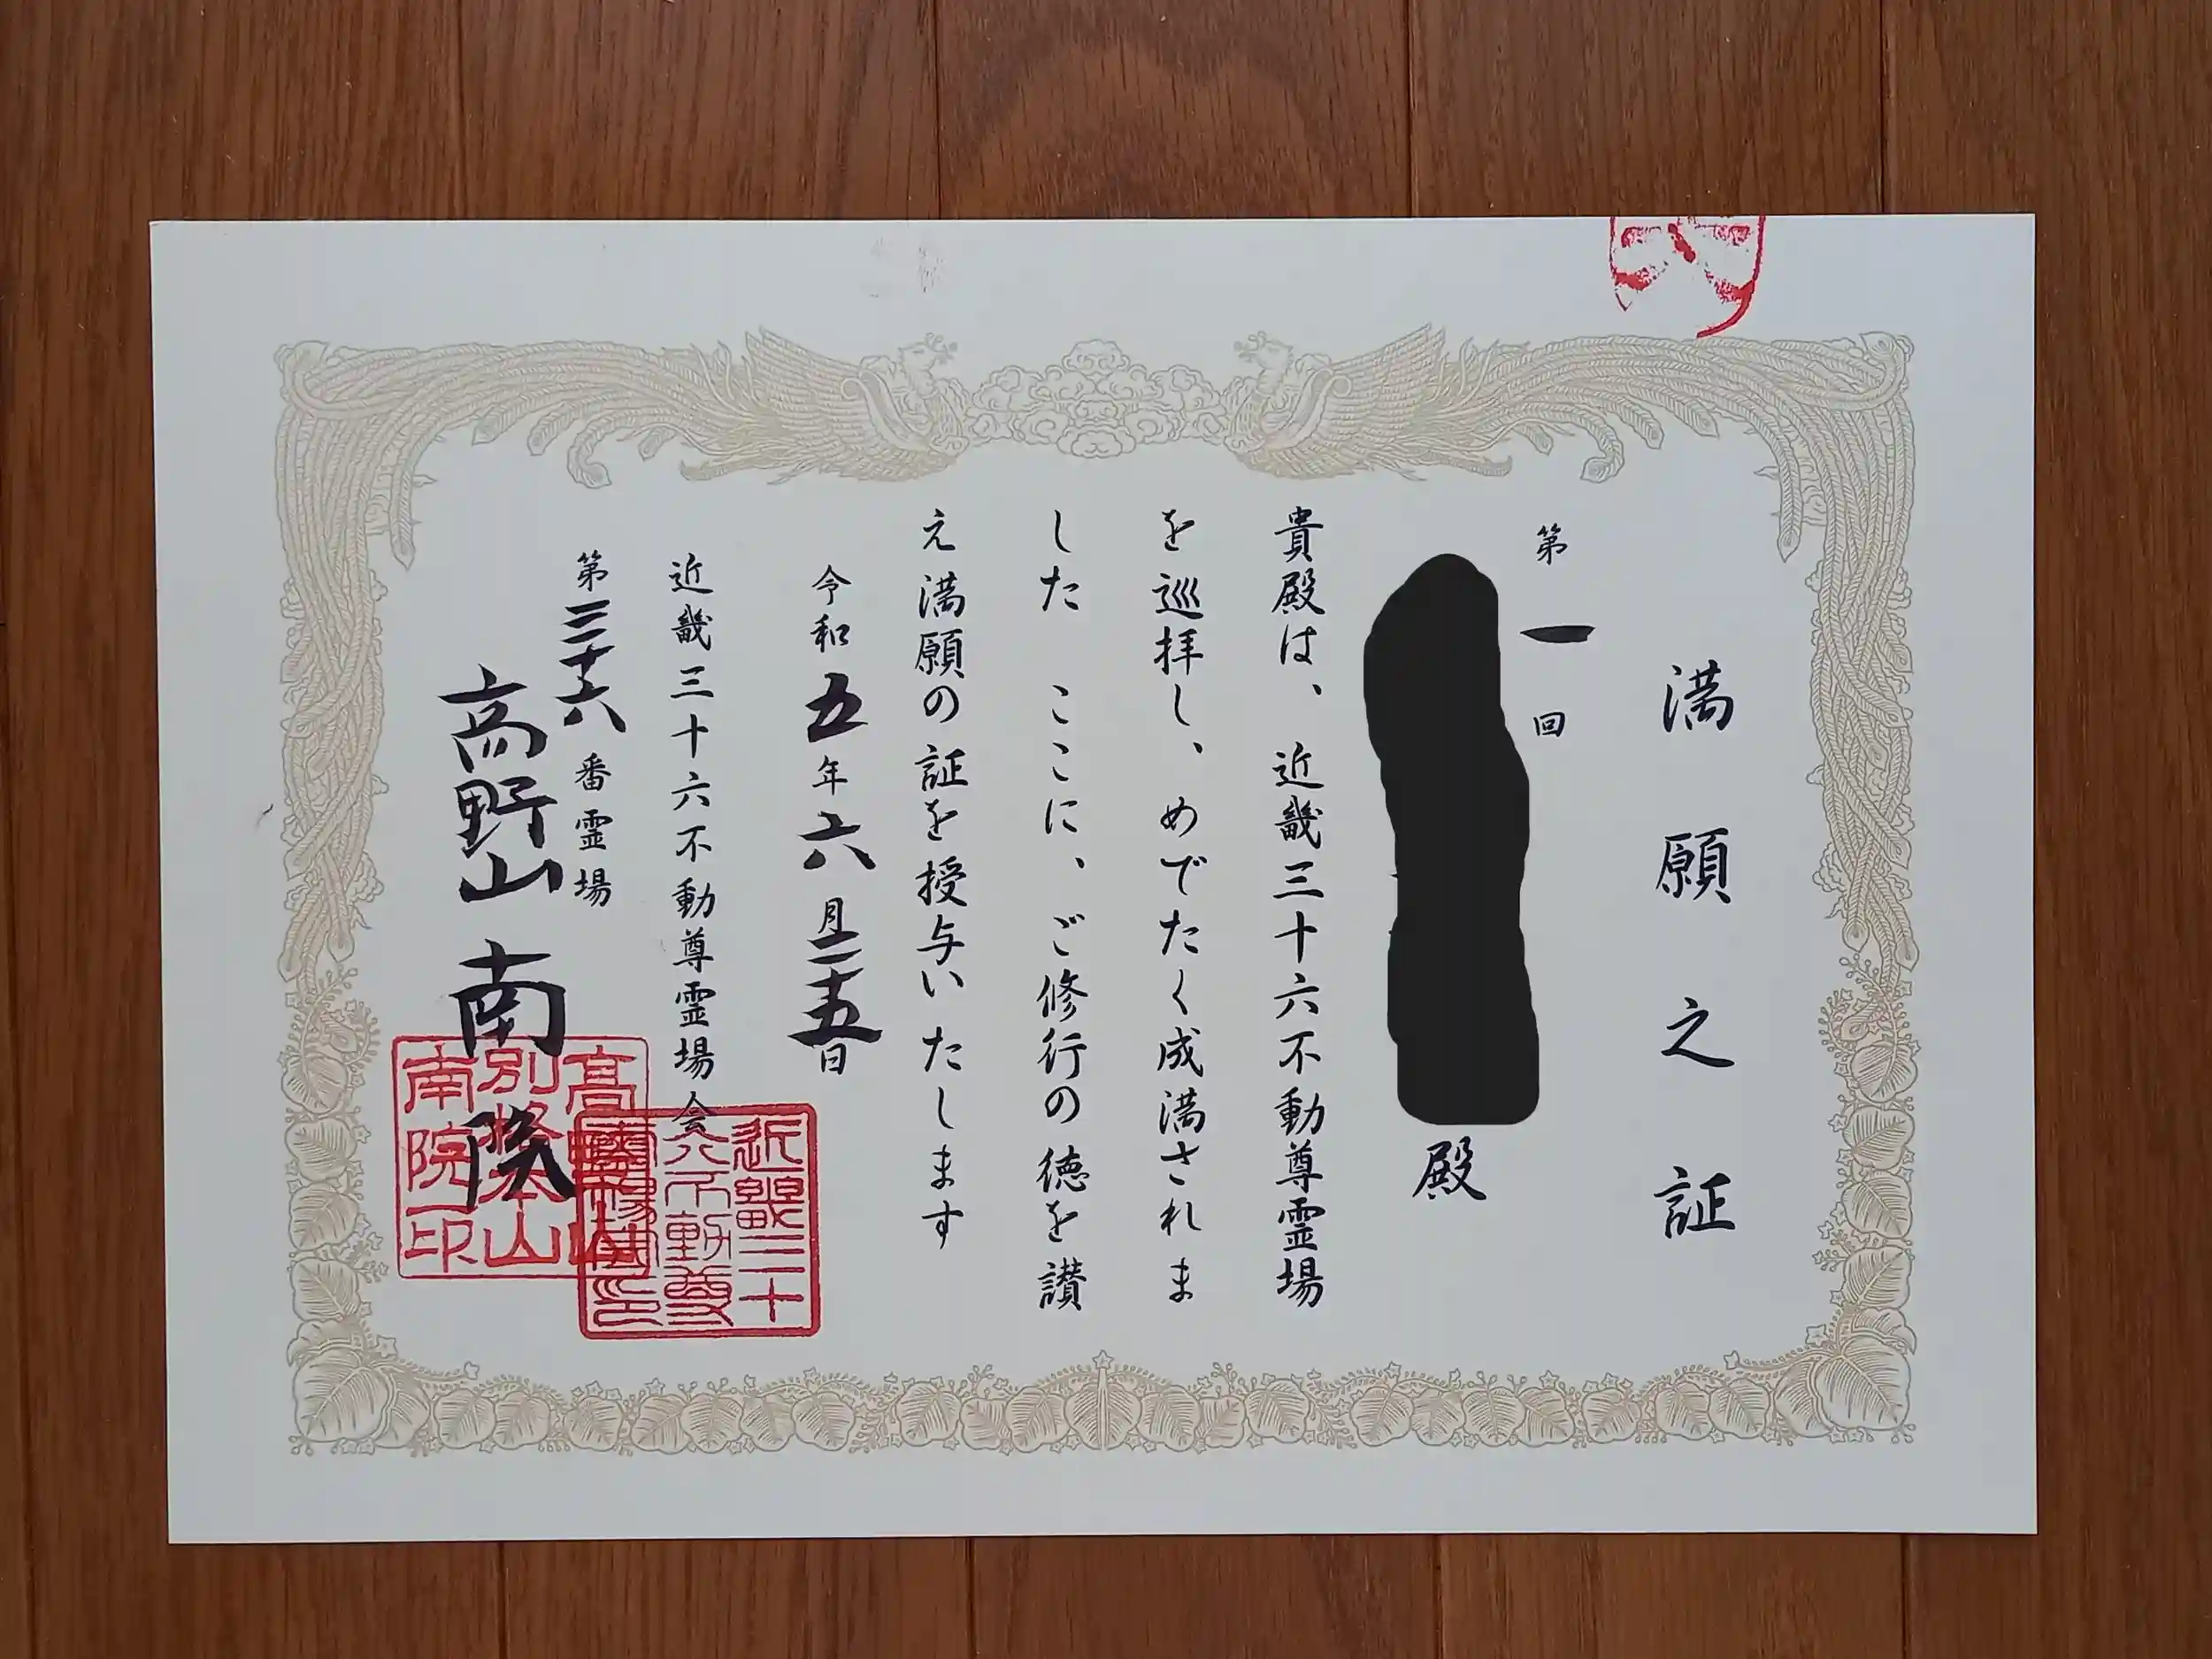 満願之証
第一回
殿
貴殿は、近畿三十六不動尊霊場
を巡拝し、めでたく成満されま
した ここに、ご修行の徳を讃
え満願の証を授与いたします
令和五年六月二十五日
近畿三十六不動尊霊場会
第三十六番霊場
高野山 南院
高野山
別格本山
南院印
近畿三十
六不動尊
霊場会印